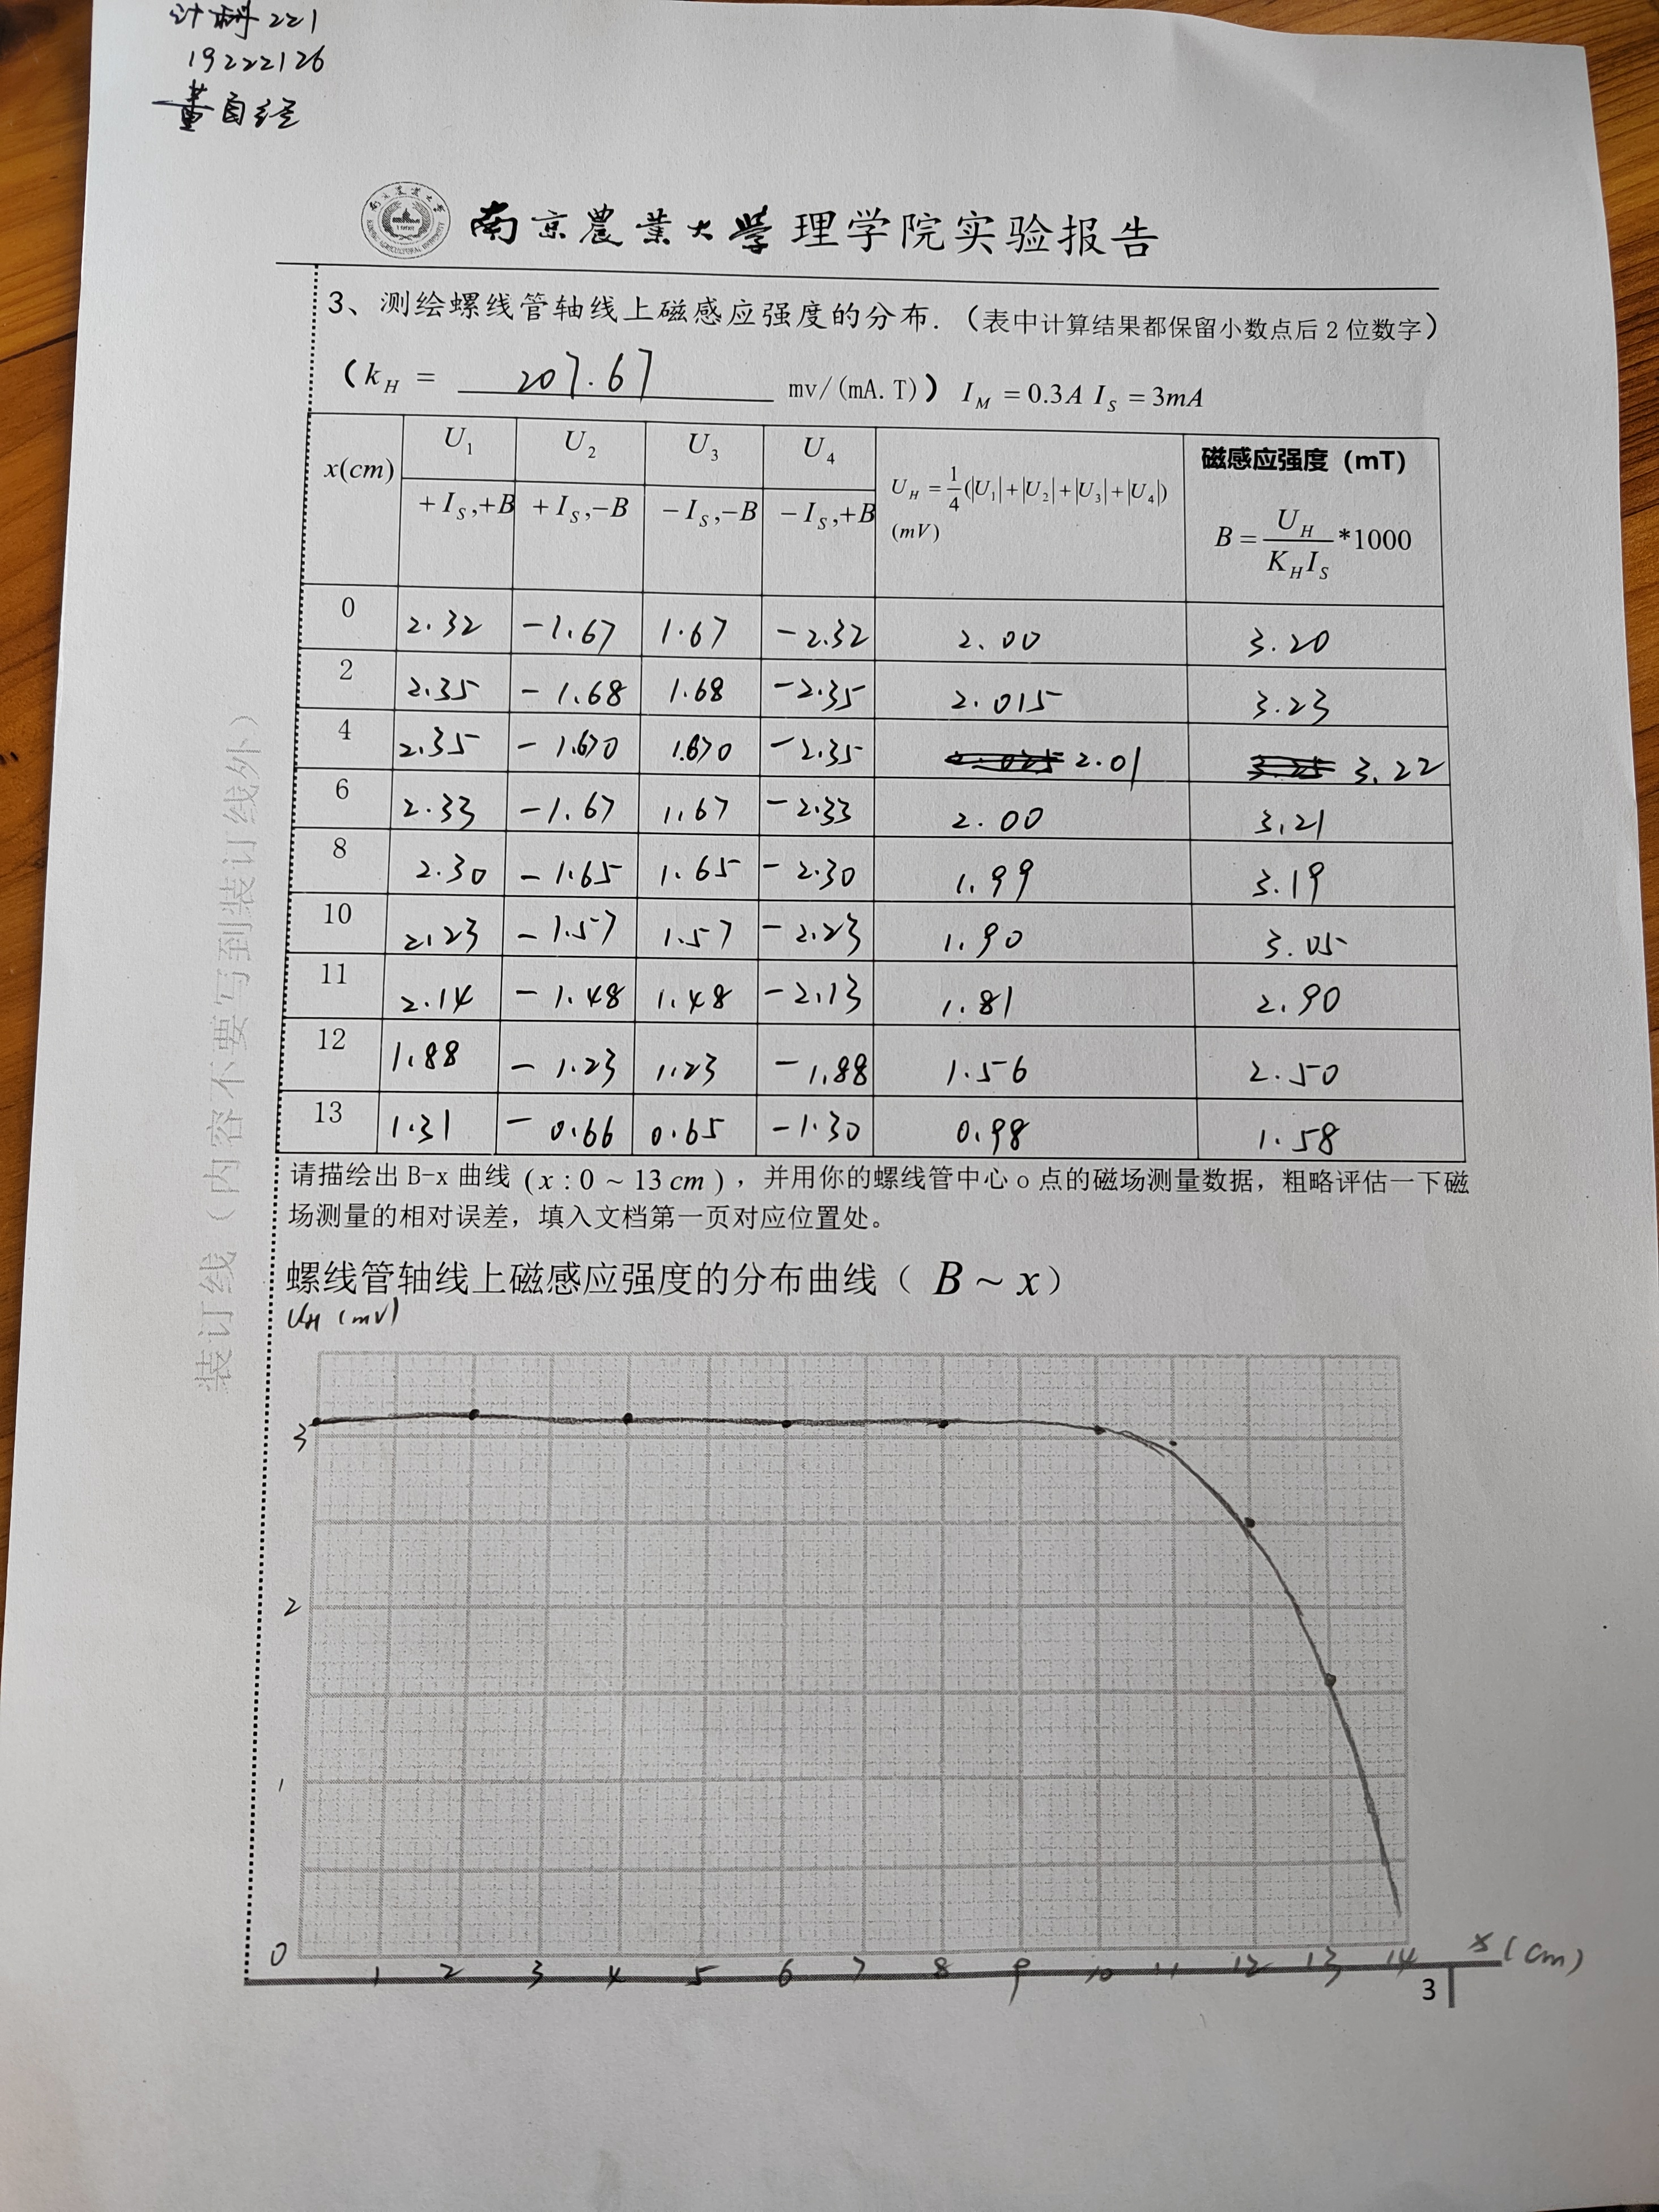 计科221
19222126
董自经
南京農業大學理学院实验报告
3、测绘螺线管轴线上磁感应强度的分布.（表中计算结果都保留小数点后2位数字）
（k_H = 207.67 mv/(mA.T)）I_M = 0.3A I_S = 3mA
x(cm) U_1 U_2 U_3 U_4 U_H = 1/4(|U_1|+|U_2|+|U_3|+|U_4|) (mV) 磁感应强度（mT）
+I_S,+B +I_S,−B −I_S,−B −I_S,+B B = U_H/(K_H I_S) *1000
0 2.32 -1.67 1.67 -2.32 2.00 3.20
2 2.35 -1.68 1.68 -2.35 2.015 3.23
4 2.35 -1.670 1.670 -2.35 2.01 3.22
6 2.33 -1.67 1.67 -2.33 2.00 3.21
8 2.30 -1.65 1.65 -2.30 1.99 3.19
10 2.23 -1.57 1.57 -2.23 1.90 3.05
11 2.14 -1.48 1.48 -2.13 1.81 2.90
12 1.88 -1.23 1.23 -1.88 1.56 2.50
13 1.31 -0.66 0.65 -1.30 0.98 1.58
请描绘出 B-x 曲线 (x : 0 ~ 13 cm)，并用你的螺线管中心 o 点的磁场测量数据，粗略评估一下磁
场测量的相对误差，填入文档第一页对应位置处。
螺线管轴线上磁感应强度的分布曲线（ B ~ x）
U_H (mV)
3
2
1
0
1 2 3 4 5 6 7 8 9 10 11 12 13 14 x (cm)
3
装订线（内容不要写到装订线外）